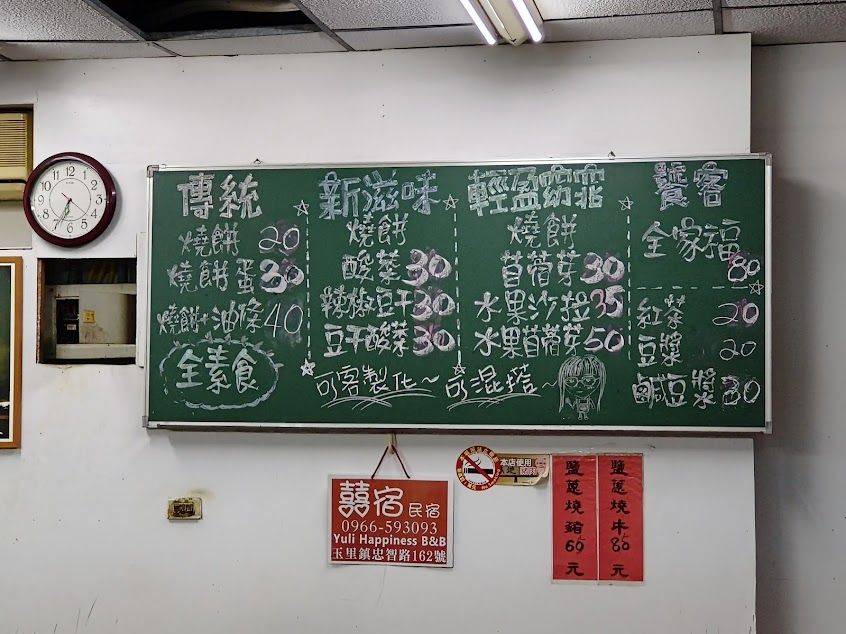 傳統
燒餅 20
燒餅蛋 30
燒餅+油條 40
全素食
新滋味
燒餅
酸菜 30
辣椒豆干 30
豆干酸菜 30
輕盈窈窕
燒餅
苜蓿芽 30
水果沙拉 35
水果苜蓿芽 50
可客製化~可混搭~
饕客
全家福
80
紅茶 20
豆漿 20
鹹豆漿 30
囍宿民宿
0966-593093
Yuli Happiness B&B
玉里鎮忠智路162號
本店使用
鹽蔥燒豬60元
鹽蔥燒牛80元